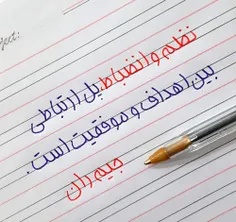 ject:
نظم و انضباط پل ارتباطی
بین اهداف و موفقیت است.
جیم ران